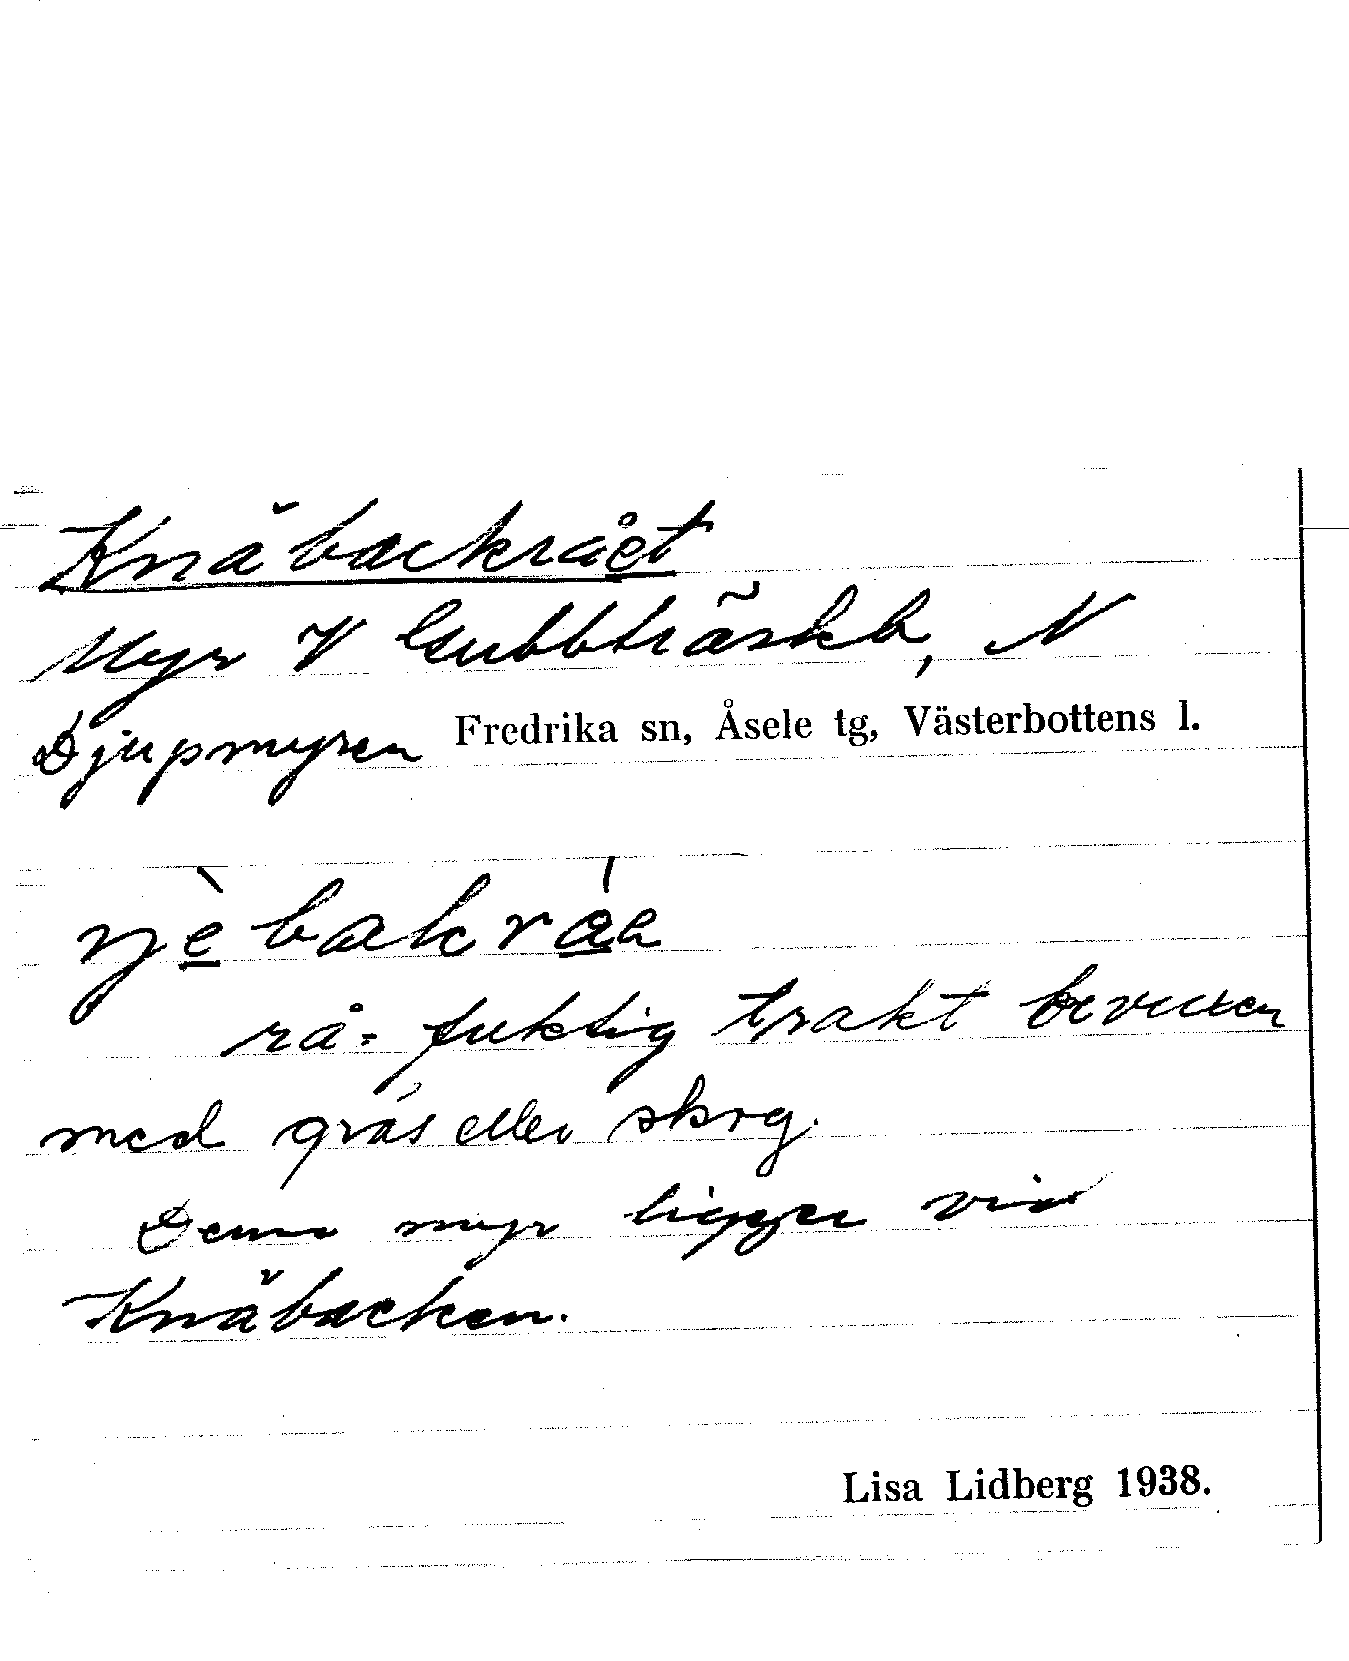 Knäbackrået
Myr V Gubbträskb, N
Djupmyren Fredrika sn, Åsele tg, Västerbottens l.
rå = fuktig trakt bevuxen
med gräs eller skog.
Denna myr ligger vid
Knäbacken.
Lisa Lidberg 1938.